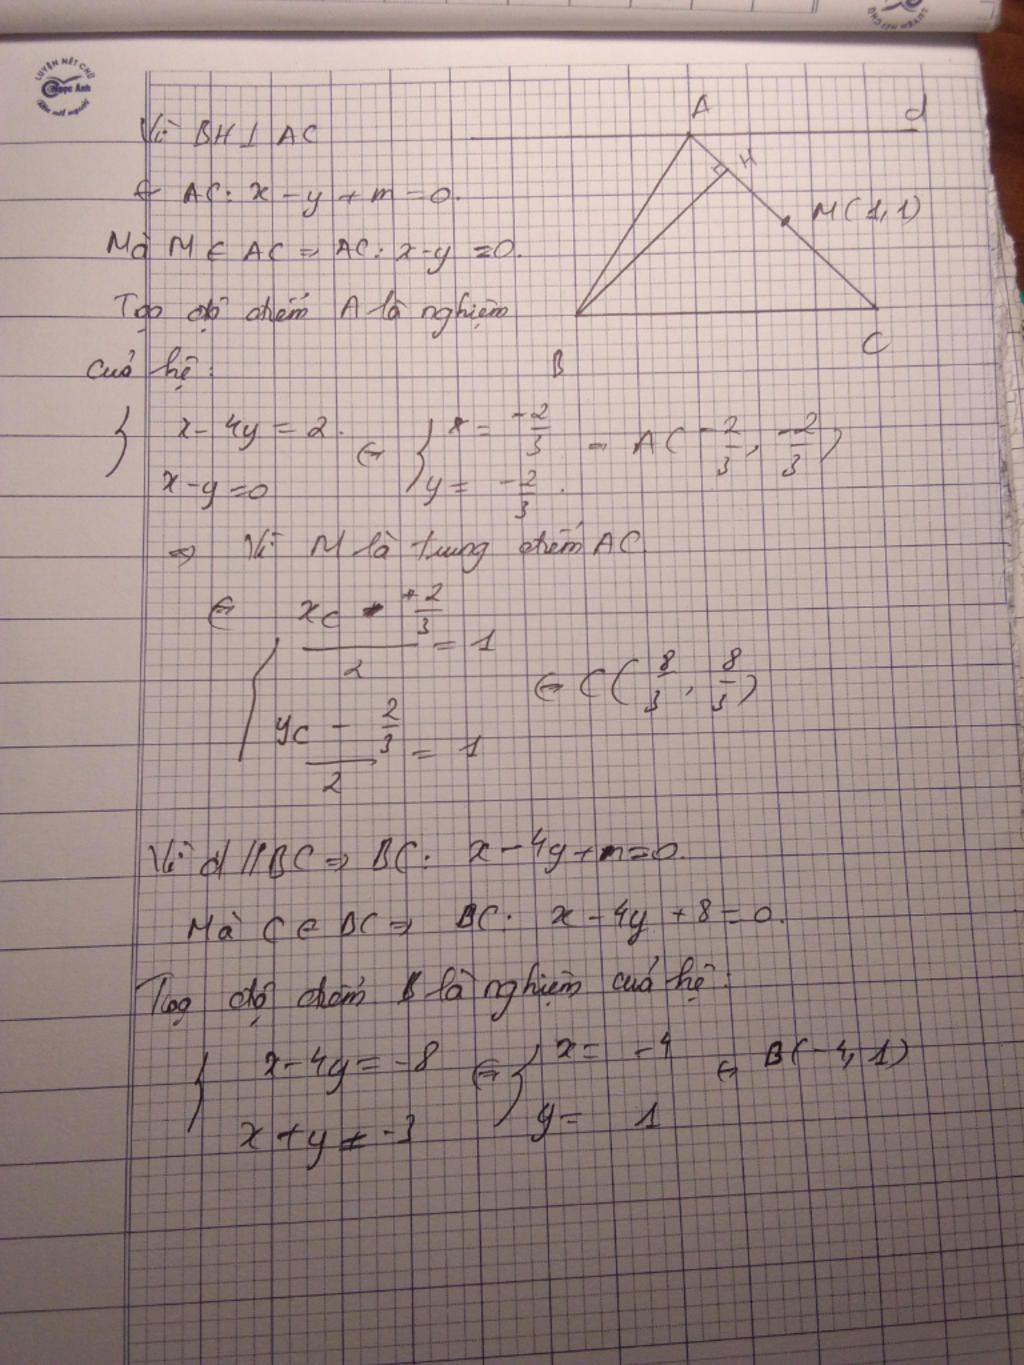 LUYỆN NÉT CHỮ
Ngọc Ánh
Vì BH ⊥ AC
A
d
H
M(1,1)
B
C
⇔ AC: x - y + m = 0.
Mà M ∈ AC ⇒ AC: x - y = 0.
Tọa độ điểm A là nghiệm
của hệ:
{ x - 4y = 2. ⇔ { x = -2/3 ⇒ A(-2/3, -2/3)
x - y = 0 y = -2/3.
⇒ Vì M là trung điểm AC
⇔ { (xC + -2/3)/2 = 1
(yC - 2/3)/2 = 1 ⇔ C(8/3, 8/3)
Vì d // BC ⇒ BC: x - 4y + n = 0.
Mà C ∈ BC ⇒ BC: x - 4y + 8 = 0.
Tọa độ điểm B là nghiệm của hệ:
{ x - 4y = -8 ⇔ { x = -4 ⇔ B(-4, 1)
x + y = -3 y = 1